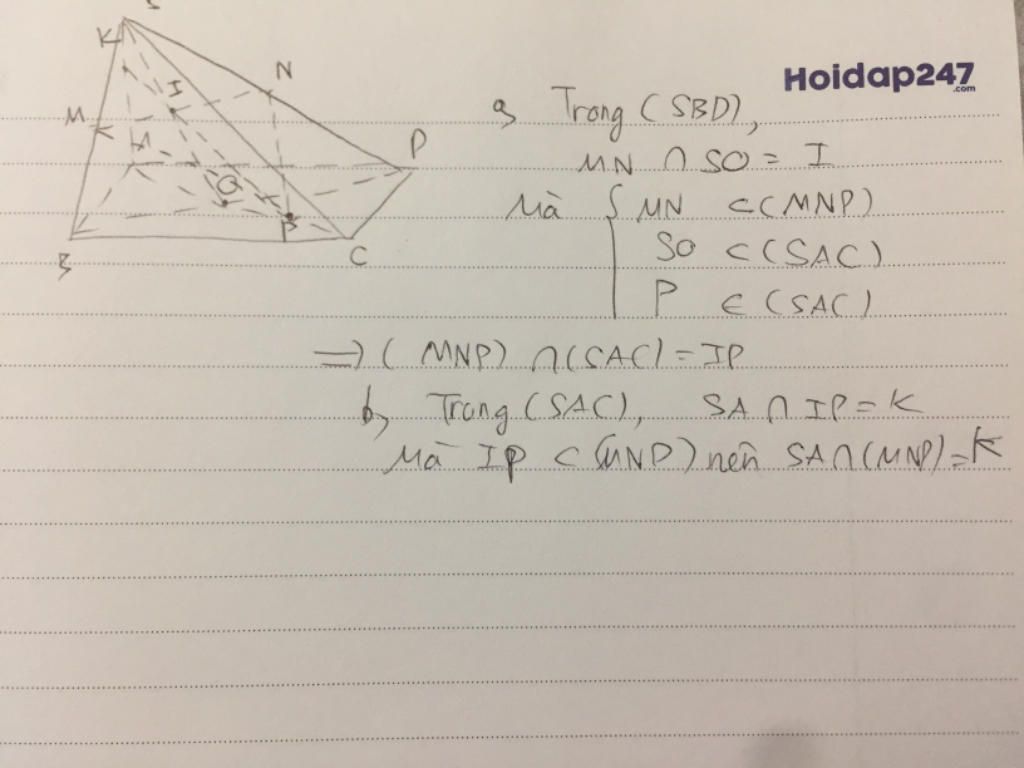 S
K
I
N
M
A
P
O
P
B
C
Hoidap247
.com
a, Trong (SBD),
MN ∩ SO = I
Mà { MN ⊂ (MNP)
SO ⊂ (SAC)
P ∈ (SAC)
=> (MNP) ∩ (SAC) = IP
b, Trong (SAC), SA ∩ IP = K
Mà IP ⊂ (MNP) nên SA ∩ (MNP) = K